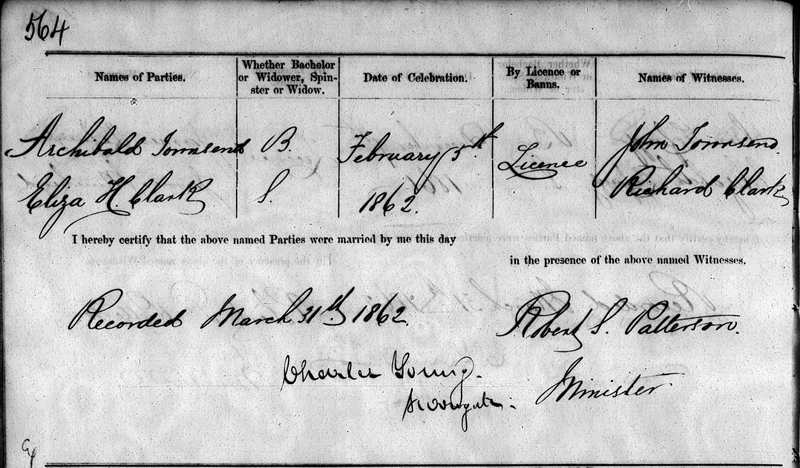 564
Names of Parties. Whether Bachelor or Widower, Spinster or Widow. Date of Celebration. By Licence or Banns. Names of Witnesses.
Archibald Townsend B. February 5th Licence John Townsend
Eliza H. Clark S. 1862. Richard Clark
I hereby certify that the above named Parties were married by me this day
in the presence of the above named Witnesses.
Recorded March 31th 1862 Robert S. Patterson.
Charles Young. Minister
Surrogate.